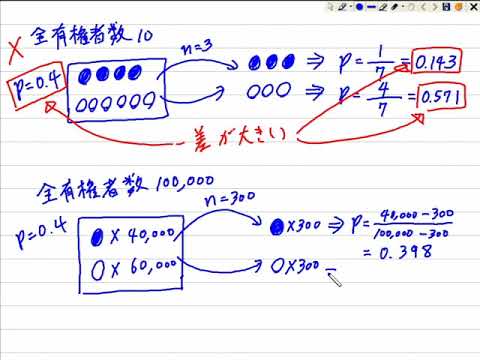 × 全有権者数 10
n=3
P=0.4
⇒ P = 1/7 = 0.143
⇒ P = 4/7 = 0.571
差が大きい
全有権者数 100,000
n=300
P=0.4
● × 40,000
●×300 ⇒ P = 40,000−300/100,000−300
= 0.398
○ × 60,000
○×300